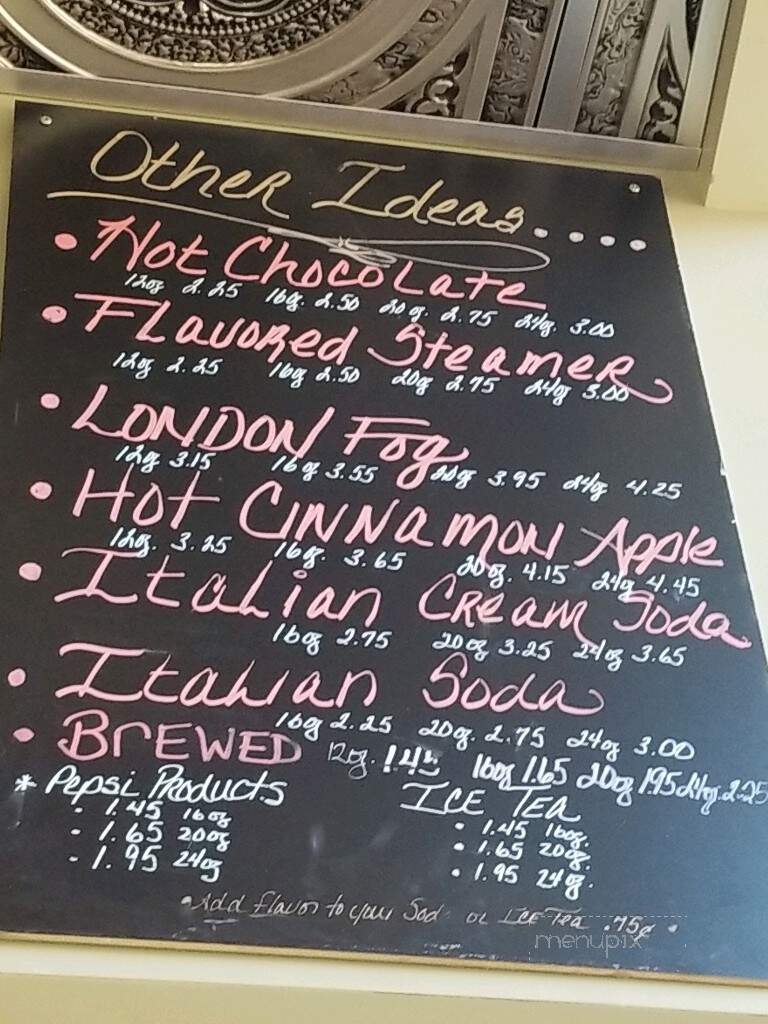 Other Ideas....
• Hot Chocolate
12oz 2.25 16oz. 2.50 20oz. 2.75 24oz. 3.00
• Flavored Steamer
12oz 2.25 16oz 2.50 20oz 2.75 24oz 3.00
• LONDON Fog
12oz 3.15 16oz 3.55 20oz 3.95 24oz 4.25
• Hot Cinnamon Apple
12oz. 3.25 16oz. 3.65 20oz. 4.15 24oz 4.45
• Italian Cream Soda
16oz 2.75 20oz 3.25 24oz 3.65
• Italian Soda
16oz 2.25 20oz. 2.75 24oz 3.00
• BrEWED 12oz. 1.45 16oz 1.65 20oz 1.95 24oz. 2.25
* Pepsi Products
- 1.45 16oz
- 1.65 20oz
- 1.95 24oz
ICE TEA
• 1.45 16oz.
• 1.65 20oz.
• 1.95 24oz.
• Add flavor to your Sod or ICE Tea .75¢ •
menupix